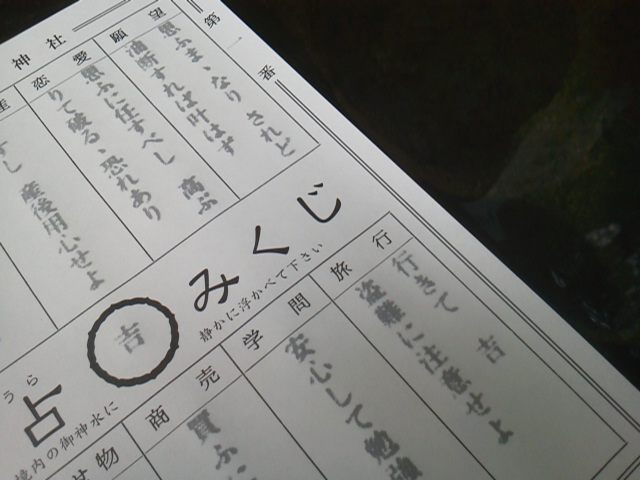 神社
第一番
願望
思ふまゝなり されど
油断すれば叶はず
恋愛
思ふに任すべし 高ぶ
りて破る、恐れあり
産後用心せよ
みくじ
静かに浮かべて下さい
吉
うら
占
境内の御神水に
旅行
行きて 吉
盗難に注意せよ
学問
安心して勉強
商売
買ふに
物